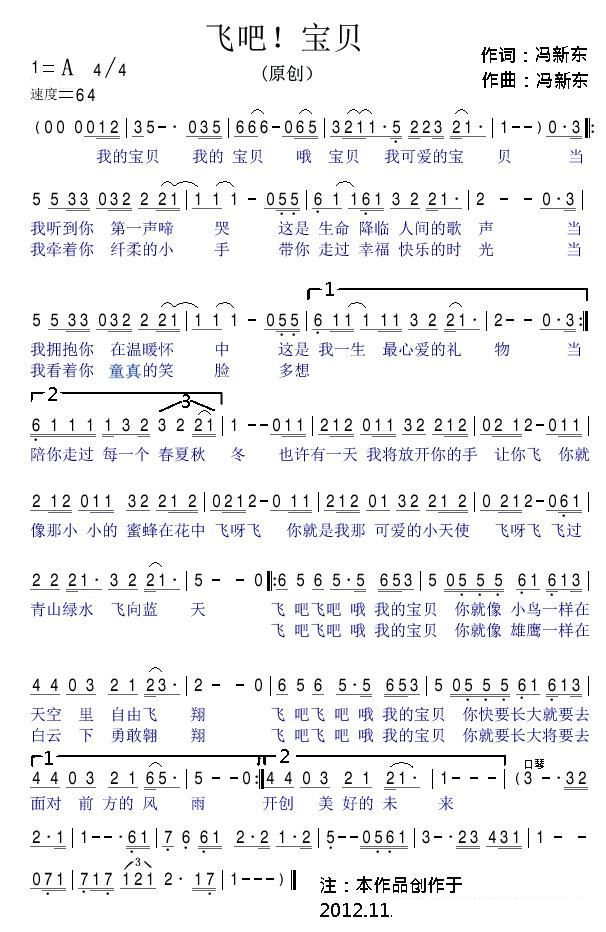 飞吧！宝贝
(原创)
作词：冯新东
作曲：冯新东
1=A 4/4
速度=64
(00 0012|35-· 035|666-065|3211·5 223 21·|1--)0·3‖:
我的宝贝 我的 宝贝 哦 宝贝 我可爱的宝 贝 当
5 5 33 032 2 21|1 1 1 - 055|6 1 161 3 2 21·|2 - - 0·3|
我听到你 第一声啼 哭 这是 生命 降临 人间的歌 声 当
我牵着你 纤柔的小 手 带你 走过 幸福 快乐的时 光 当
1
5 5 33 032 2 21|1 1 1 - 055|6 11 1 11 3 2 21·|2-- 0·3:‖
我拥抱你 在温暖怀 中 这是 我一生 最心爱的礼 物 当
我看着你 童真的笑 脸 多想
2
3
6 1 1 1 1 3 2 3 2 21|1--011|212 011 32 212|02 12-011|
陪你走过 每一个 春夏秋 冬 也许有一天 我将放开你的手 让你飞 你就
2 12 011 32 21 2|0212-0 11|212 01 32 21 2|0 212-061|
像那小 小的 蜜蜂在花中 飞呀飞 你就是我那 可爱的小天使 飞呀飞 飞过
2 2 21· 3 2 21·|5 - - 0‖:6 5 6 5·5 653|5 0555 61 613|
青山绿水 飞向蓝 天 飞 吧飞吧 哦 我的宝贝 你就像 小鸟一样在
飞 吧飞吧 哦 我的宝贝 你就像 雄鹰一样在
4 4 0 3 2 1 23·|2 - - 0|6 5 6 5·5 653|5 0555 61 613|
天空 里 自由飞 翔 飞 吧飞 吧 哦 我的宝贝 你快要长大就要去
白云 下 勇敢翱 翔 飞 吧飞 吧 哦 我的宝贝 你就要长大将要去
1 2 口琴
4 4 03 21 65·|5--0:‖4 4 03 21 21·|1---|(3-·32
面对 前 方的 风 雨 开创 美 好的 未 来
2·1|1--·61|7 6 61 2·2 1·2|5--0561|3-·23 431|1 - -
3
071|717 121 2· 17|1---)‖
注：本作品创作于
2012.11.